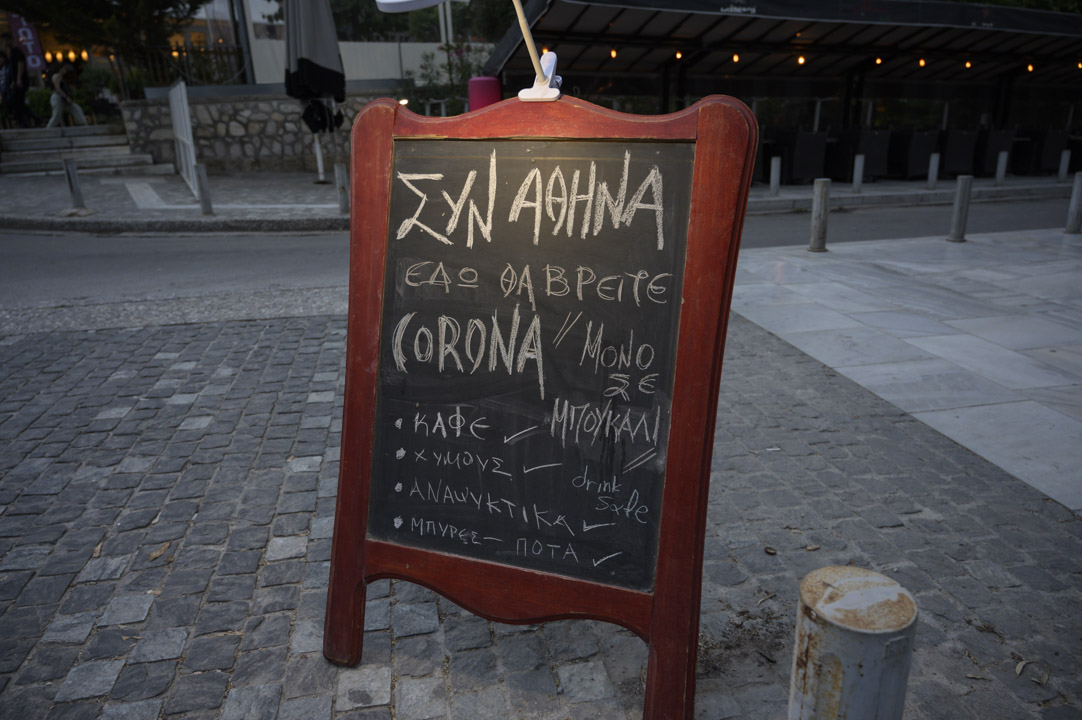 ΣΥΝ ΑΘΗΝΑ
ΕΔΩ ΘΑ ΒΡΕΙΤΕ
CORONA // ΜΟΝΟ
ΣΕ
ΜΠΟΥΚΑΛΙ
• ΚΑΦΕ ✓
• ΧΥΜΟΥΣ ✓
• ΑΝΑΨΥΚΤΙΚΑ ✓
• ΜΠΥΡΕΣ — ΠΟΤΑ ✓
drink
safe